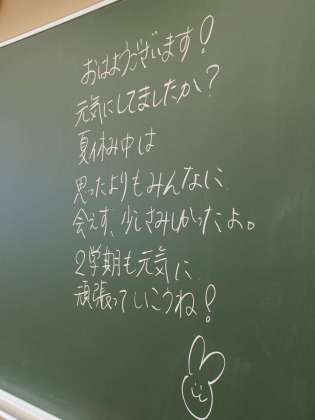 おはようございます!
元気にしてましたか?
夏休み中は
思ったよりもみんなに
会えず、少しさみしかったよ。
2学期も元気に
頑張っていこうね!